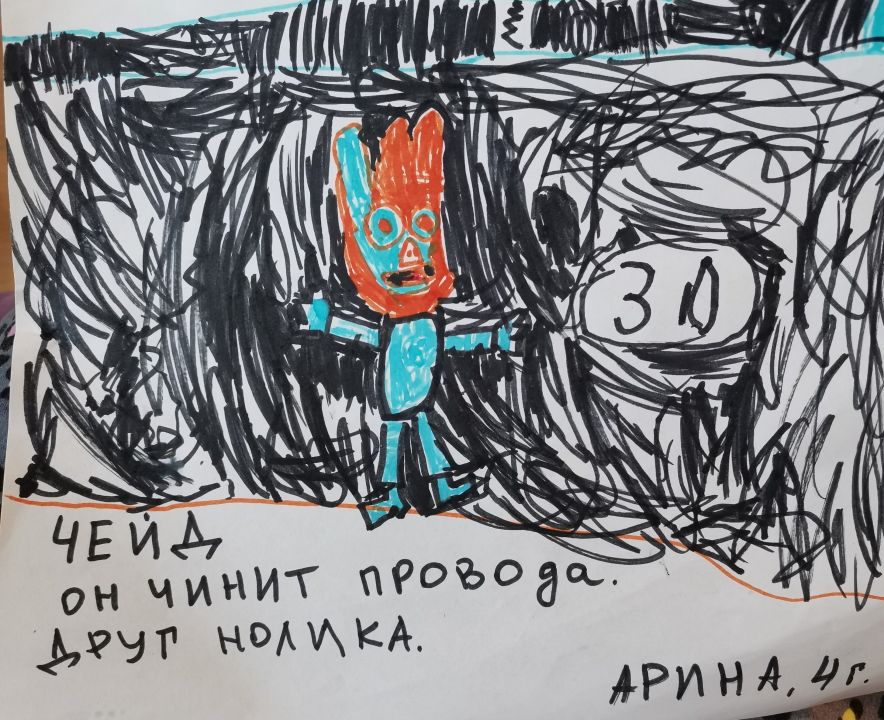 3D
ЧЕЙД
ОН ЧИНИТ ПРОВОда.
ДРУГ НОЛИКА.
АРИНА, 4г.